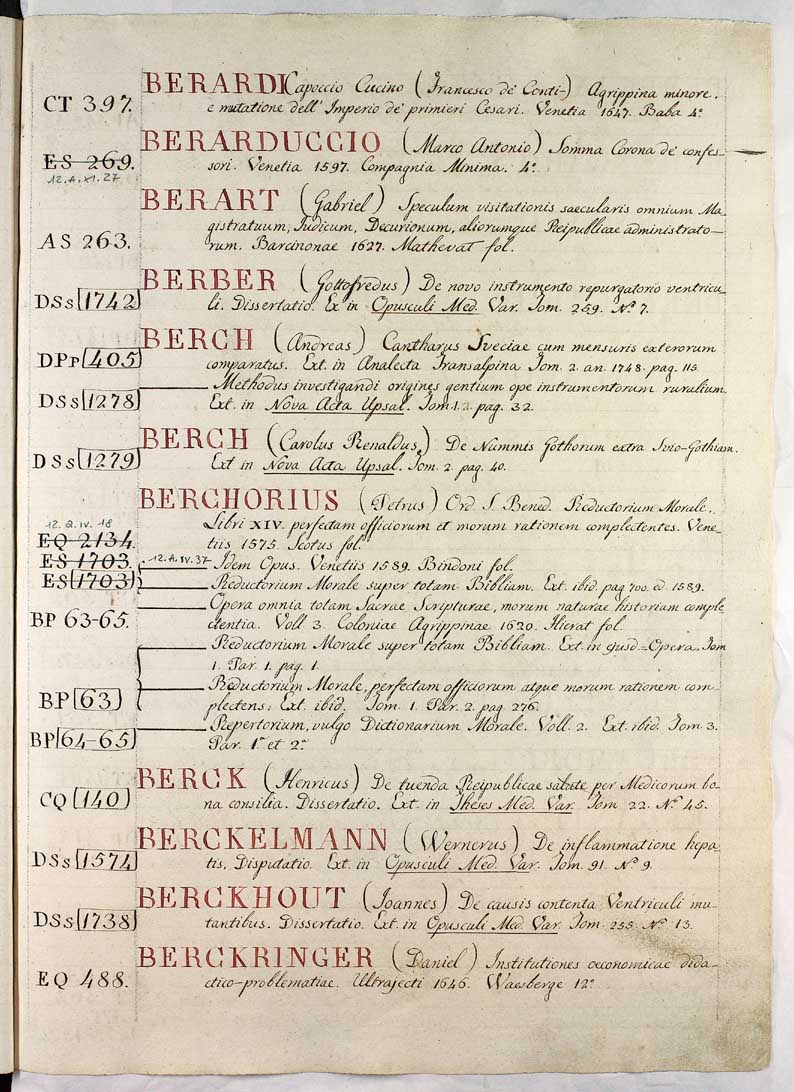 BERARDI Capoccio Cucino (Francesco de' Conti-) Agrippina minore.
CT 397. e mutatione dell' Imperio de' primieri Cesari. Venetia 1647. Baba 4°
BERARDUCCIO (Marco Antonio) Somma Corona de' confes-
ES 269. sori. Venetia 1597. Compagnia Minima. 4°
12.A.XI.27
BERART (Gabriel) Speculum visitationis saecularis omnium Ma-
gistratuum, Iudicum, Decurionum, aliorumque Reipublicae administrato-
AS 263. rum. Barcinonae 1627. Mathevat fol.
BERBER (Gottofredus) De novo instrumento repurgatorio ventricu-
DSs 1742 li. Dissertatio. Ex in Opusculi Med. Var. Tom. 259. N.° 7.
BERCH (Andreas) Cantharus Sveciae cum mensuris exterorum
DPp 405 comparatus. Ext. in Analecta Transalpina Tom. 2. an. 1748. pag. 115.
Methodus investigandi origines gentium ope instrumentorum ruralium.
DSs 1278 Ext. in Nova Acta Upsal. Tom. 1.2. pag. 32.
BERCH (Carolus Renaldus) De Nummis Gothorum extra Svio-Gothiam.
DSs 1279 Ext in Nova Acta Upsal. Tom. 2. pag. 40.
BERCHORIUS (Petrus) Ord. S. Bened. Reductorium Morale.
12.Q.IV.18 Libri XIV. perfectam officiorum et morum rationem complectentes. Vene-
EQ 2134. tiis 1575. Scotus fol.
ES 1703. 12.A.IV.37 Idem Opus. Venetiis 1589. Bindoni fol.
ES 1703 Reductorium Morale super totam Bibliam. Ext. ibid. pag 700. ed. 1589.
Opera omnia totam Sacrae Scripturae, morum naturae historiam comple
BP 63-65. ctentia. Voll. 3. Coloniae Agrippinae 1620. Hierat fol.
Reductorium Morale super totam Bibliam. Ext. in ejusd = Opera. Tom
1. Par. 1. pag. 1.
Reductorium Morale, perfectam officiorum atque morum rationem com-
BP 63 plectens: Ext. ibid. Tom. 1. Par. 2. pag. 276.
Repertorium, vulgo Dictionarium Morale. Voll. 2. Ext. ibid. Tom. 3.
BP 64-65 Par. 1.ª et 2.ª
BERCK (Henricus) De tuenda Reipublicae salute per Medicorum bo-
CQ 140 na consilia. Dissertatio. Ext. in Theses Med. Var. Tom 22. N.° 45.
BERCKELMANN (Wernerus) De inflammatione hepa-
DSs 1574 tis. Disputatio. Ext. in Opusculi Med. Var. Tom. 91. N.° 9.
BERCKHOUT (Joannes) De causis contenta Ventriculi mu-
DSs 1738 tantibus. Dissertatio. Ext. in Opusculi Med. Var. Tom. 255. N.° 13.
BERCKRINGER (Daniel) Institutiones oeconomicae dida-
EQ 488. ctico-problematiae. Ultrajecti 1646. Waesberge 12°